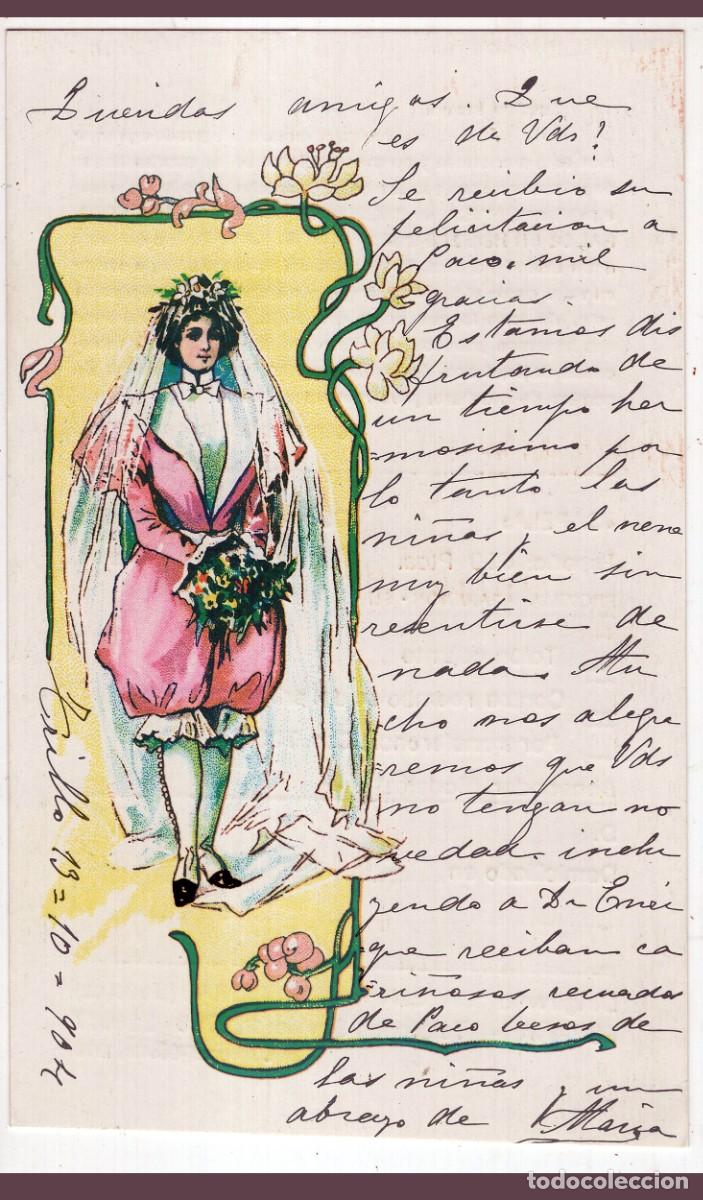 Queridos amigos. Que
es de Vds?
Se recibio su
felicitacion a
Paco. mil
gracias.
Estamos dis
frutando de
un tiempo her
mosisimo por
lo tanto las
niñas y el nene
muy bien sin
resentirse de
nada. Mu
cho nos alegra
remos que Vds
no tengan no
vedad. inclu
yendo a Dn
que reciban ca
riñosos recuerdos
de Paco besos de
las niñas y un
abrazo de Maria
Trillo 13=10=904
todocoleccion